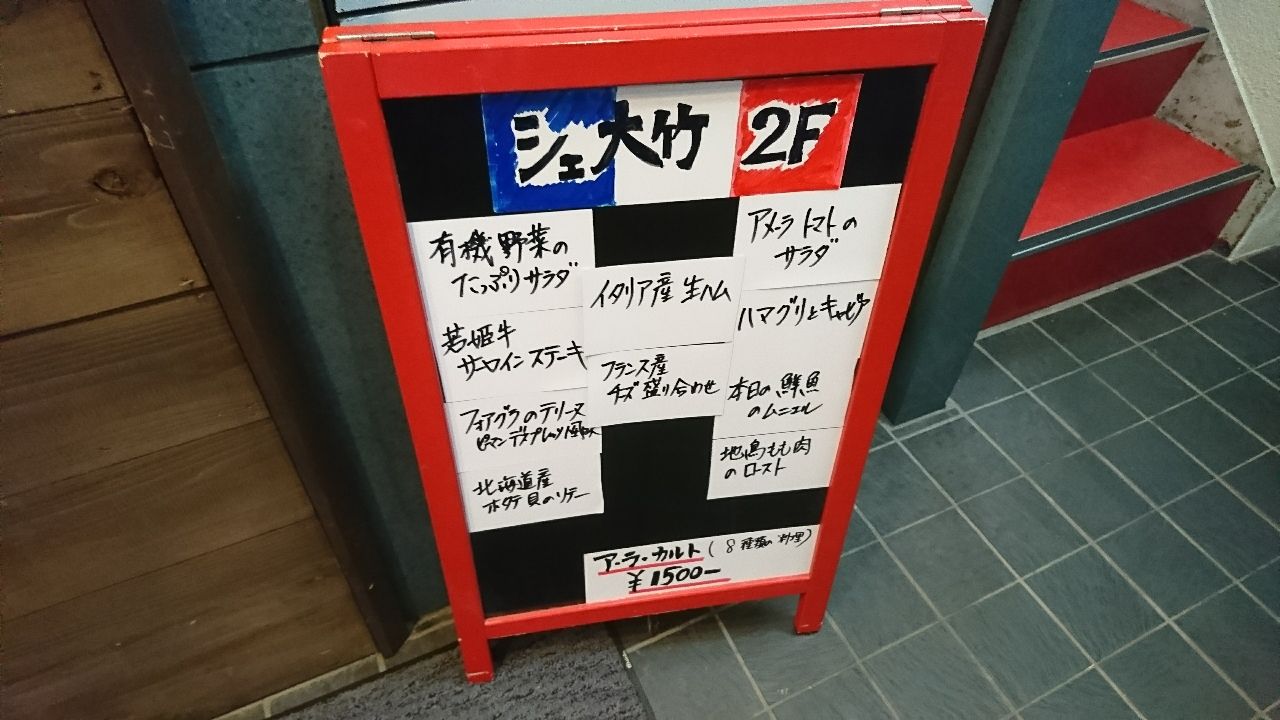 シェ大竹 2F
有機野菜の
たっぷりサラダ
若姫牛
サーロインステーキ
フォアグラのテリーヌ
ピマンデスプレット風味
北海道産
ホタテ貝のソテー
イタリア産 生ハム
フランス産
チーズ盛り合わせ
アメーラトマトの
サラダ
ハマグリとキャビア
本日の鮮魚
のムニエル
地鶏もも肉
のロースト
ア・ラ・カルト(8種類の料理)
¥1500-